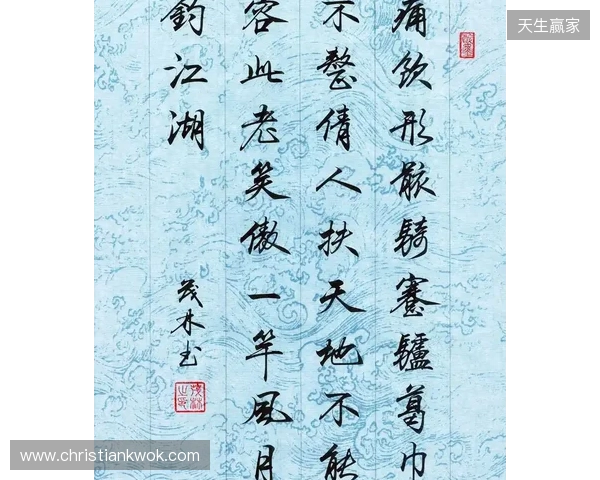 天生赢家
痛饮形骸騎蹇驢葛巾
不整倩人扶天地不能
容此老笑傲一竿風月
釣江湖
茂林书
www.christiankwok.com